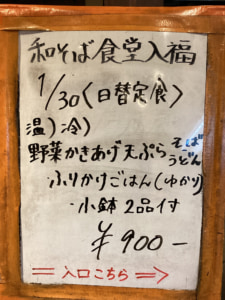 和そば食堂入福
1/30〈日替定食〉
温)冷)
野菜かきあげ天ぷら そば うどん
・ふりかけごはん(ゆかり)
・小鉢2品付
¥900-
== 入口こちら ==>